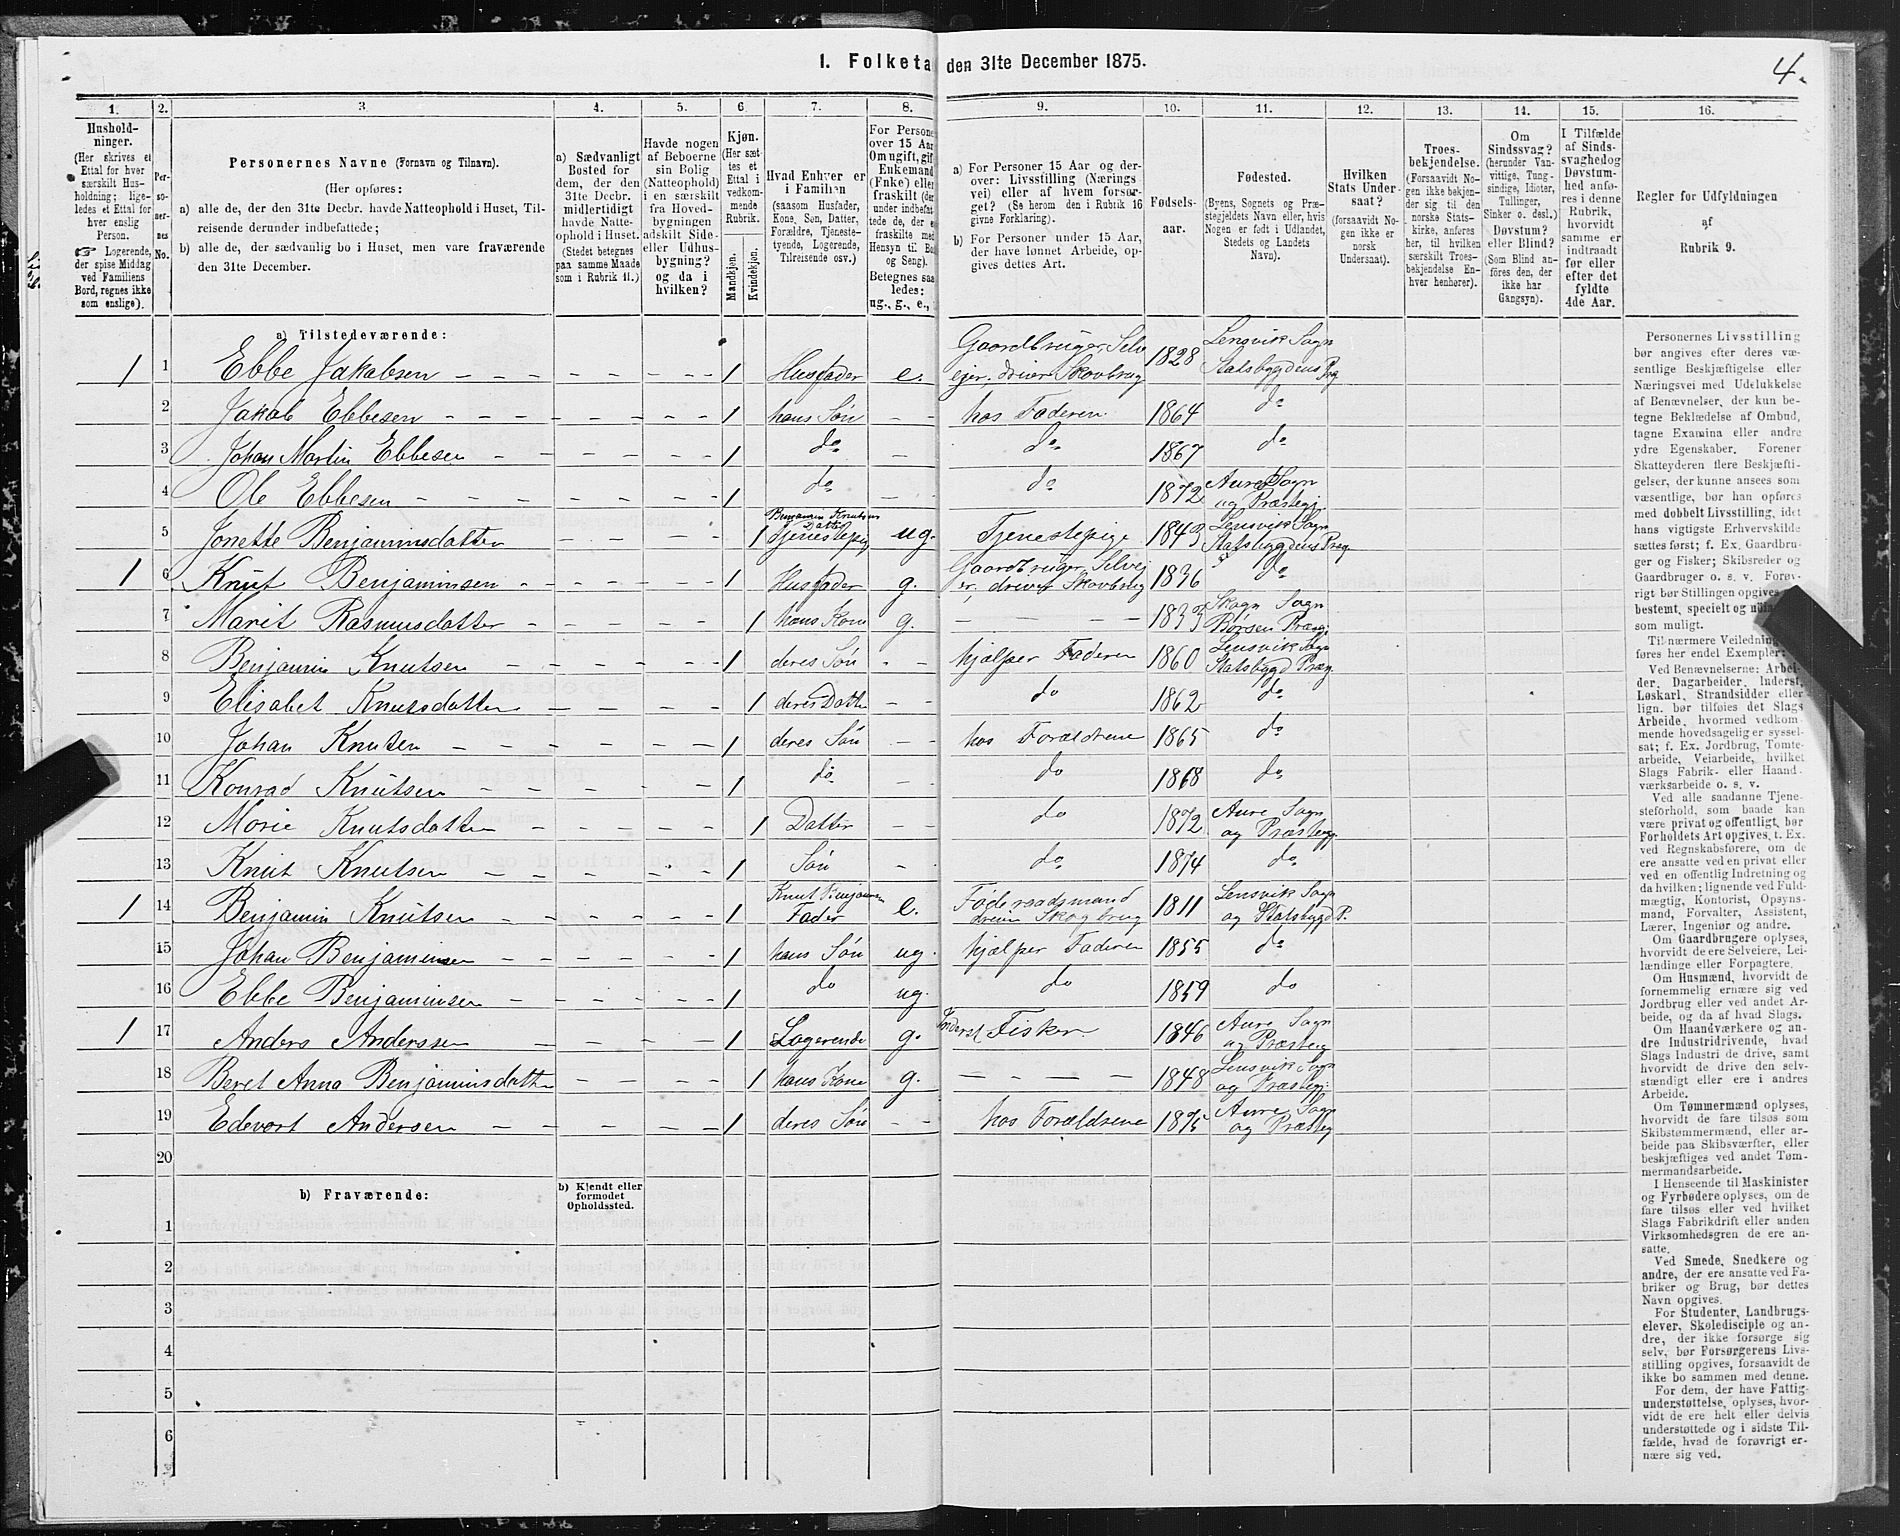 1. Folketa den 31te December 1875.
4.
1.
2.
3.
4.
5.
6.
7.
8.
9.
10.
11.
12.
13.
14.
15.
16.
Hushold-
ninger.
(Her skrives et
Ettal for hver
særskilt Hus-
holdning; lige-
ledes et Ettal for
hver enslig
Person.
☞ Logerende,
der spise Middag
ved Familiens
Bord, regnes ikke
som enslige).
Per-
so-
ner-
nes
No.
Personernes Navne (Fornavn og Tilnavn).
(Her opføres:
a) alle de, der den 31te Decbr. havde Natteophold i Huset, Til-
reisende derunder indbefattede;
b) alle de, der sædvanlig bo i Huset, men vare fraværende
den 31te December.
a) Sædvanligt
Bosted for
dem, der den
31te Decbr.
midlertidigt
havde Natte-
ophold i Huset.
(Stedet betegnes
paa samme Maade
som i Rubrik 11.)
Havde nogen
af Beboerne
sin Bolig
(Natteophold)
i en særskilt
fra Hoved-
bygningen
adskilt Side-
eller Udhus-
bygning?
og da i
hvilken?
Kjøn.
(Her sæt-
tes et
Ettal i
vedkom-
mende
Rubrik.
Mandkjøn.
Kvindekjøn.
Hvad Enhver er
i Familien
(saasom Husfader,
Kone, Søn, Datter,
Forældre, Tjeneste-
tyende, Logerende,
Tilreisende osv.)
For Persone
over 15 Aar
Om ugift, gif
Enkemand
(Fnke) elle
fraskilt (der
under indbefat-
tede de, der e
fraskilte med
Hensyn til Bo
og Seng).
Betegnes saa
ledes:
ug., g., e.,
a) For Personer 15 Aar og der-
over: Livsstilling (Nærings
vei) eller af hvem forsør-
get? (Se herom den i Rubrik 16
givne Forklaring).
b) For Personer under 15 Aar,
der have lønnet Arbeide, op-
gives dettes Art.
Fødsels-
aar.
Fødested.
(Byens, Sognets og Præ-
stegjeldets Navn eller, hvis
Nogen er født i Udlandet,
Stedets og Landets
Navn).
Hvilken
Stats Under-
saat?
(forsaavidt No-
gen ikke er
norsk
Undersaat).
Troes-
bekjendelse.
(Forsaavidt No-
gen ikke bekjen-
der sig til den
norske Stats-
kirke, anføres
her, til hvilken
særskilt Troes-
bekjendelse En-
hver henhører).
Om
Sindssvag?
(herunder Van-
vittige, Tung-
sindige, Idioter,
Tullinger,
Sinker o. desl.)
Døvstum?
eller Blind?
(Som Blind an-
føres den, der
ikke har
Gangsyn).
I Tilfælde
af Sinds-
svaghed og
Døvstum-
hed anfø-
res i denne
Rubrik,
hvorvidt
samme er
indtraadt
før eller
efter det
fyldte
4de Aar.
Regler for Udfyldningen
af
Rubrik 9.
a) Tilstedeværende:
1 1 Ebbe Jakobsen 1 Husfader e. Gaardbruger, Selv ejer, driver Skovbrug 1828 Lensvik Sogn Statsbygdens Præg
2 Jakob Ebbesen 1 hans Søn hos Faderen 1864 do
3 Johan Martin Ebbesen 1 do do 1867 do
4 Ole Ebbesen 1 do do 1872 Aure Sogn og Præstegj
5 Jonette Benjaminsdatter 1 Benjamin Knutsens Datter Tjenestepig ug. Tjenestepige 1843 Lensvik Sogn Statsbygdens Præg
1 6 Knut Benjaminsen 1 Husfader g. Gaardbruger, Selvej er, driver Skovbrug 1836 do
7 Marit Rasmusdatter hans Kone g. 1833 Skogn Sogn Børsen Præg
8 Benjamin Knutsen 1 deres Søn hjælper Faderen 1860 Lensvik Sogn Statsbygd Præg
9 Elisabet Knutsdatter 1 deres Datter do 1862 do
10 Johan Knutsen 1 deres Søn hos Forældrene 1865 do
11 Konrad Knutsen 1 do do 1868 do
12 Marie Knutsdatter 1 Datter do 1872 Aure Sogn og Præstegj
13 Knut Knutsen 1 Søn do 1874 do
1 14 Benjamin Knutsen 1 Knut Benjaminsen Fader e. Føderaadsmand driver Skogbrug 1811 Lensvik Sogn og Statsbygd P.
15 Johan Benjaminsen 1 hans Søn ug. hjælper Faderen 1855 do
16 Ebbe Benjaminsen 1 do ug. do 1859 do
1 17 Anders Anderssen 1 Logerende g. Inderst Fisker 1846 Aure Sogn og Præsteg
18 Beret Anna Benjaminsdatter 1 hans Kone g. 1848 Lensvik Sogn og Præstegj.
19 Edevart Andersen 1 deres Søn hos Forældrene 1875 Aure Sogn og Præsteg
20
b) Fraværende:
b) Kjendt eller
formodet
Opholdssted.
1
2
3
4
5
6
Personernes Livsstilling
bør angives efter deres væ-
sentlige Beskjæftigelse eller
Næringsvei med Udelukkelse
af Benævnelser, der kun be-
tegne Beklædelse af Ombud,
tagne Examina eller andre
ydre Egenskaber. Forener
Skatteyderen flere Beskjæfti-
gelser, der kunne ansees som
væsentlige, bør han opføres
med dobbelt Livsstilling, idet
hans vigtigste Erhvervskilde
sættes først; f. Ex. Gaardbru-
ger og Fisker; Skibsreder og
Gaardbruger o. s. v. Forøv-
rigt bør Stillingen opgives
bestemt, specielt og
som muligt.
Til nærmere Veiledning
føres her endel Exempler:
Ved Benævnelserne: Arbei-
der, Dagarbeider, Inderst,
Løskarl, Strandsidder eller
lign. bør tilføies det Slags
Arbeide, hvormed vedkom-
mende hovedsagelig er syssel-
sat; f. Ex. Jordbrug, Tomte-
arbeide, Veiarbeide, hvilket
Slags Fabrik- eller Haand-
værksarbeide o. s. v.
Ved alle saadanne Tjene-
steforhold, som baade kan
være privat og offentligt, bør
Forholdets Art opgives, t. Ex.
ved Regnskabsførere, om de
ere ansatte ved en privat eller
ved en offentlig Indretning og
da hvilken; lignende ved Fuld-
mægtig, Kontorist, Opsyns-
mand, Forvalter, Assistent,
Lærer, Ingeniør og andre.
Om Gaardbrugere oplyses,
hvorvidt de ere Selveiere, Lei-
lændinge eller Forpagtere.
Om Husmænd, hvorvidt de
fornemmelig ernære sig ved
Jordbrug eller ved andet Ar-
beide, og da af hvad Slags.
Om Haandværkere og an-
dre Industridrivende, hvad
Slags Industri de drive, samt
hvorvidt de drive den selv-
stændigt eller ere i andres
Arbeide.
Om Tømmermænd oplyses,
hvorvidt de fare tilsøs som
Skibstømmermænd, eller ar-
beide paa Skibsværfter, eller
beskjæftiges ved andet Tøm-
mermandsarbeide.
I Henseende til Maskinister
og Fyrbødere oplyses, om de
fare tilsøs eller ved hvilket
Slags Fabrikdrift eller anden
Virksomhedsgren de ere an-
satte.
Ved Smede, Snedkere og
andre, der ere ansatte ved Fa-
briker og Brug, bør dettes
Navn opgives.
For Studenter, Landbrugs-
elever, Skoledisciple og an-
dre, der ikke forsørge sig
selv, bør Forsørgerens Livs-
stilling opgives, forsaavidt de
ikke bo sammen med denne.
For dem, der have Fattig-
understøttelse, oplyses, hvor-
vidt de ere helt eller delvis
understøttede og i sidste Til-
fælde, hvad de forøvrigt er-
nære sig ved.